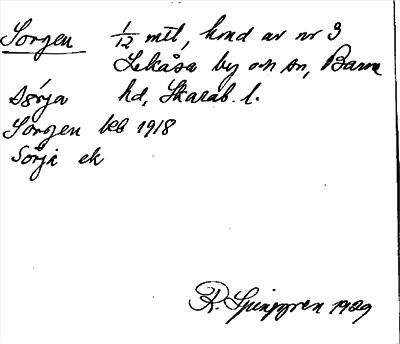 Sorgen 1/12 mtl, hmd av nr 3
Lekåsa by o-n sn, Barne
sørja hd, Skarab. l.
Sorgen kb 1918
Sörja ek
R. Ljunggren 1929